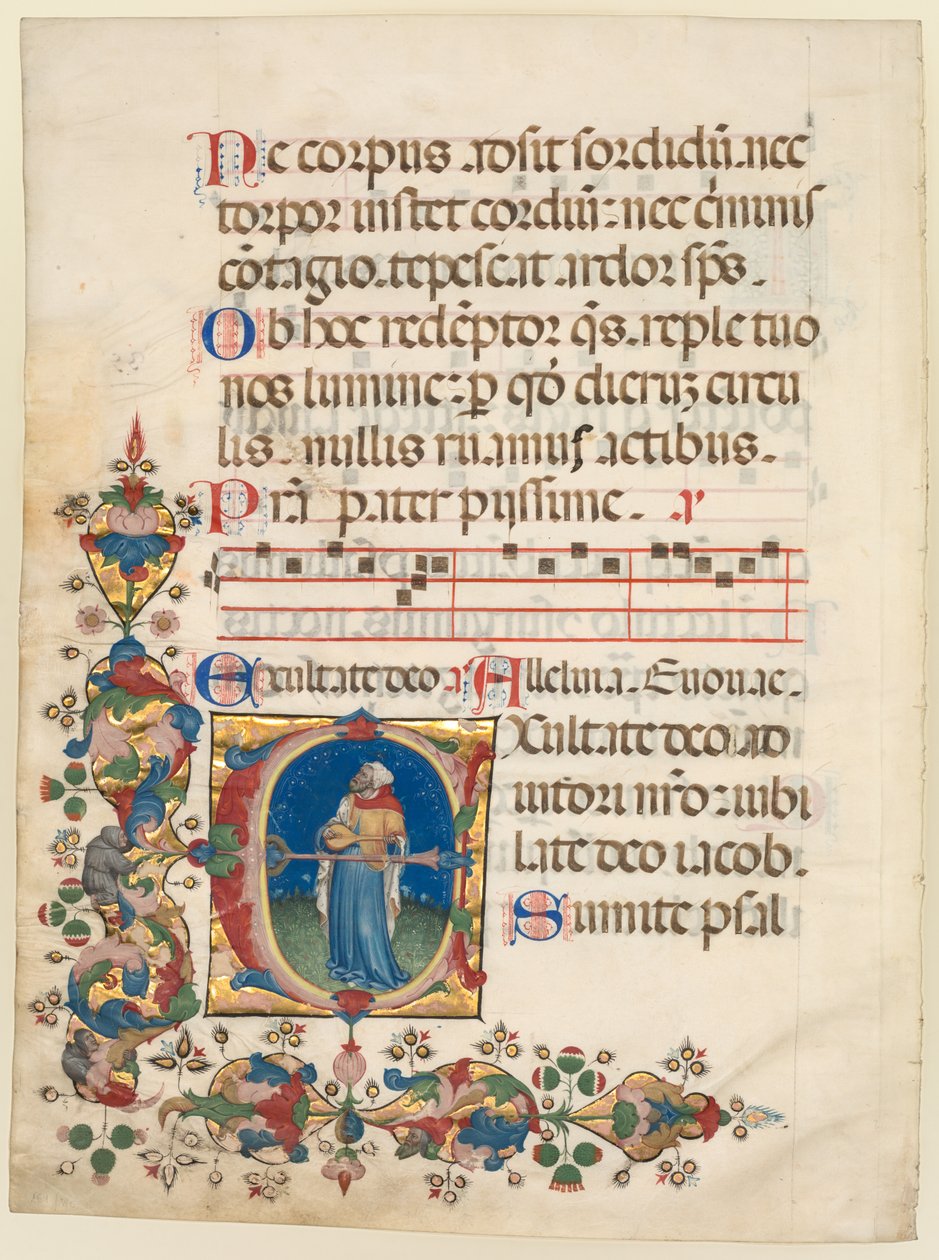 Ne corpus adsit sordidū. nec
torpor instet cordiū: nec c̄iminis
cōtagio. tepescat ardor sp̄s.
Ob hoc redēptor q̄s. reple tuo
nos lumine: p̱ qd̄ dieruꝫ circu
lis. nullis ruamus actibus.
Pr̄a pater pijssime. a
Exultate deo a Alleluia. Euouae.
EXultate deo ad
iutori nr̄o: iubi
late deo iacob.
Sumite psal